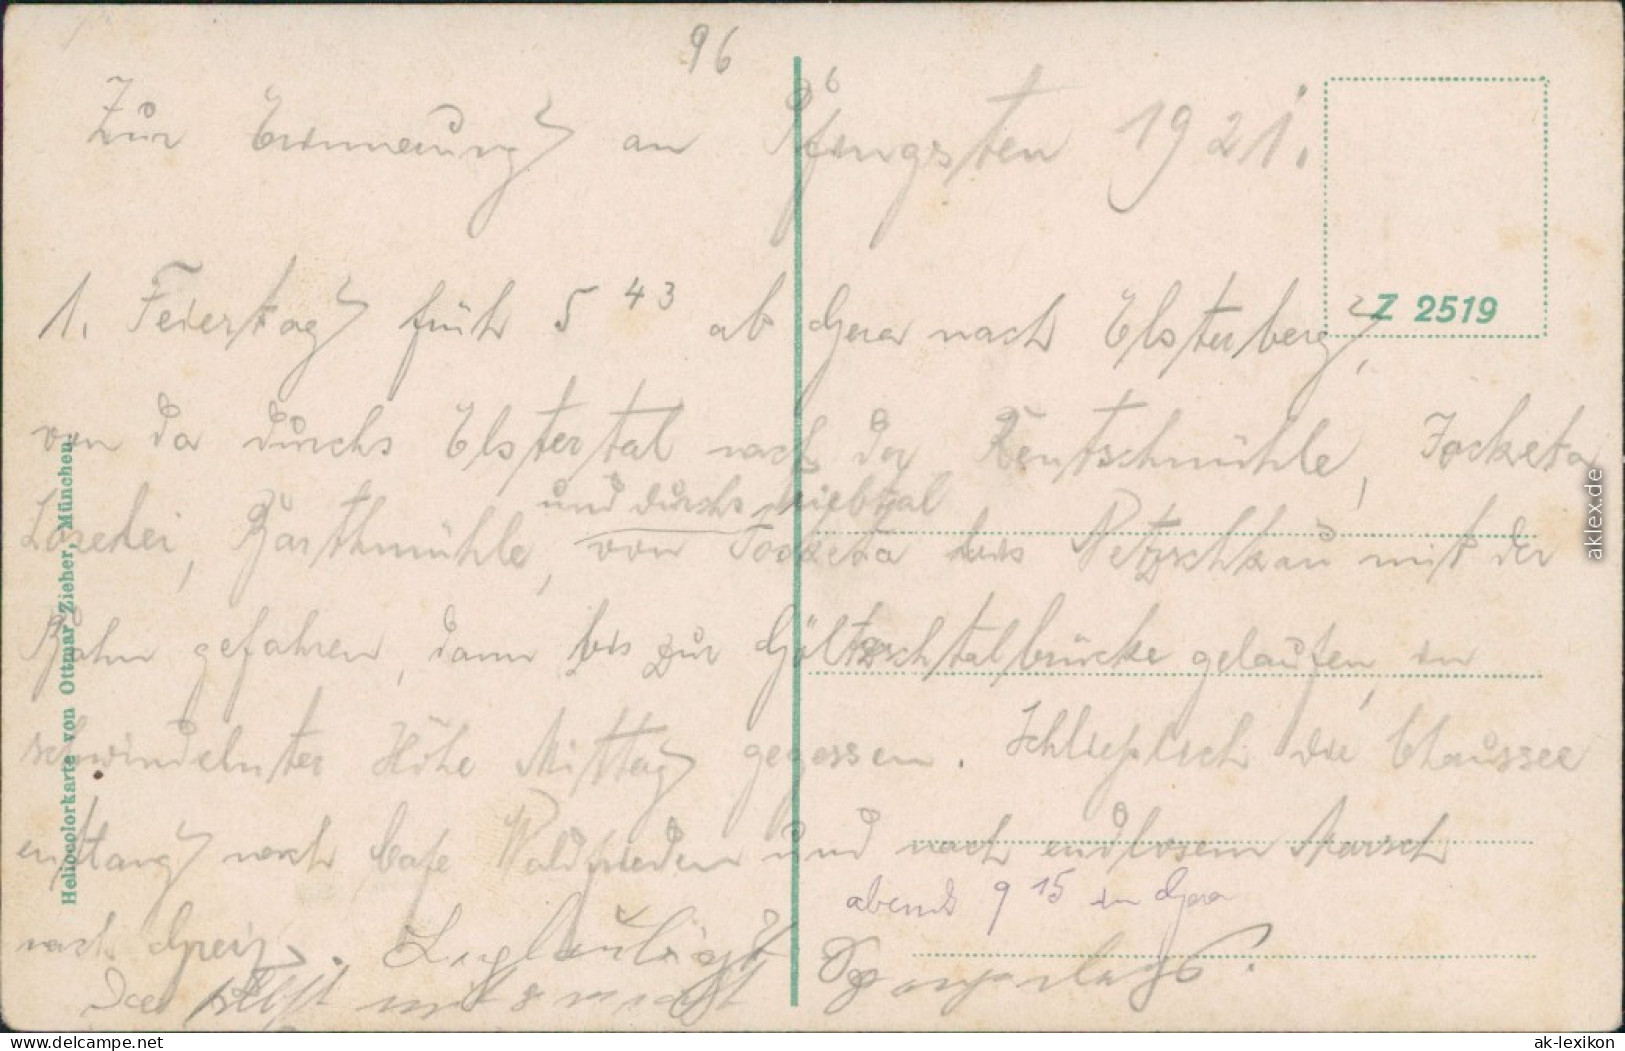 96
Zur Erinnerung an Pfingsten 1921.
1. Feiertag früh 5 43 ab Gera nach Elsterberg,
von da durchs Elstertal nach der Rentzschmühle, Jocketa
und durchs Triebtal
Barthmühle, von Jocketa bis Netzschkau mit der
Bahn gefahren, dann bis zur Göltzschtalbrücke gelaufen, in
schwindelnster Höhe Mittag gegessen. Schließlich die Chaussee
entlang nach Cafe Waldfrieden und nach endlosem Marsch
nach Greiz.
abends 9 15 in Gera
Z 2519
Heliocolorkarte von Ottmar Zieher, München.
aklex.de
© ak-lexikon.de
ak-lexikon.com